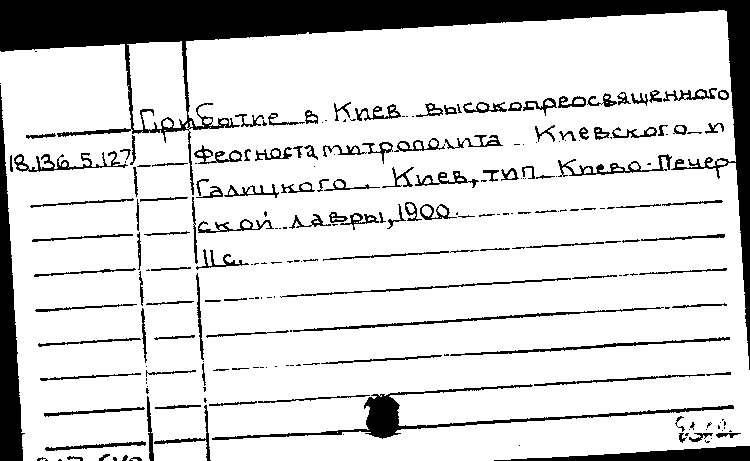 Прибытие в Киев высокопреосвященного
18.136.5.127 Феогноста митрополита Киевского и
Галицкого. Киев, тип. Киево-Печер-
ской лавры, 1900.
11 с.